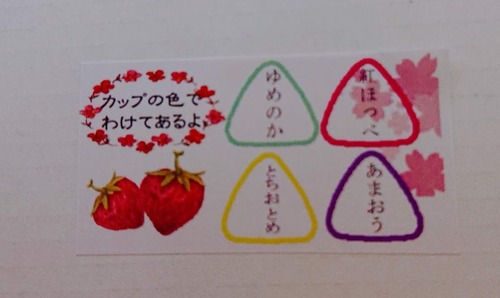 カップの色で
わけてあるよ
ゆめのか
紅ほっぺ
とちおとめ
あまおう